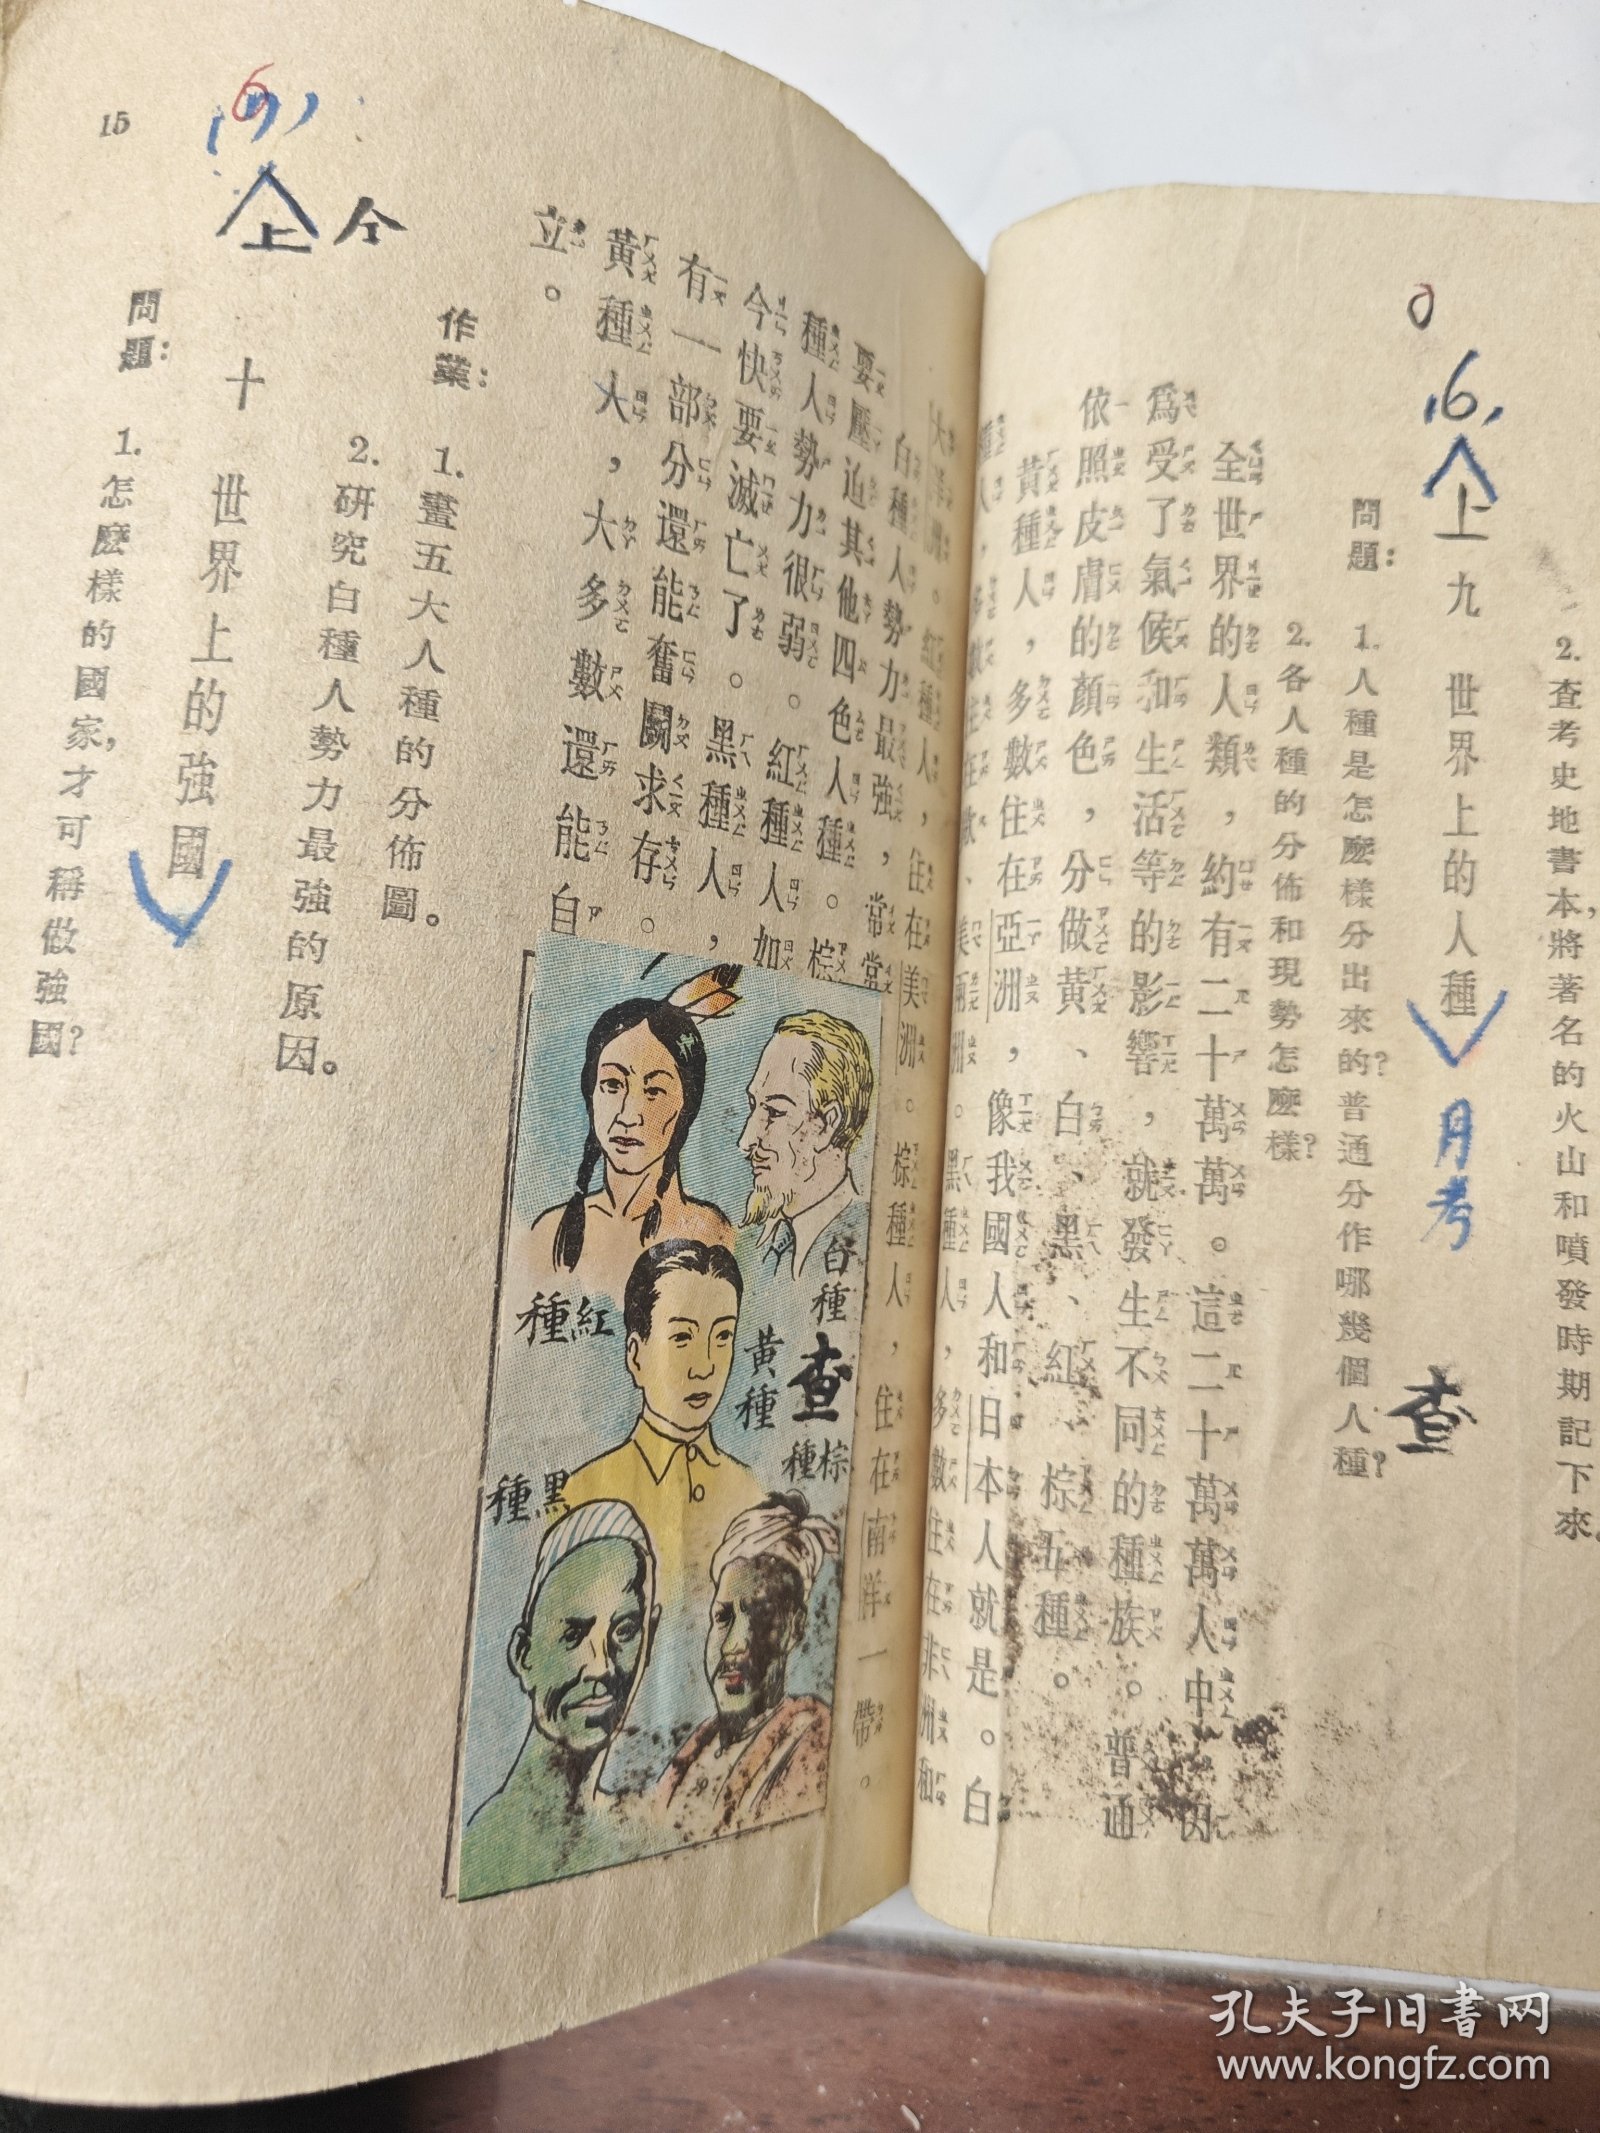 2.查考史地書本，將著名的火山和噴發時期記下來。
0
6
上
九　世界上的人種
月考
查
問題：1.人種是怎麼樣分出來的？普通分作哪幾個人種？
2.各人種的分佈和現勢怎麼樣？
全世界的人類，約有二十萬萬。這二十萬萬人中，因
爲受了氣候和生活等的影響，就發生不同的種族。普通
依照皮膚的顏色，分做黃、白、黑、紅、棕五種。
黃種人，多數住在亞洲，像我國人和日本人就是。白
種人，多數住在歐、美兩洲。黑種人，多數住在非洲和
大洋洲。紅種人，住在美洲。棕種人，住在南洋一帶。
白種人勢力最強，常常
要壓迫其他四色人種。棕
種人勢力很弱。紅種人如
今快要滅亡了。黑種人，
有一部分還能奮鬬求存。
黃種人，大多數還能自
立。
白種
紅種
黃種
查
棕種
黑種
作業：1.畫五大人種的分佈圖。
2.研究白種人勢力最強的原因。
上
十　世界上的強國
問題：1.怎麼樣的國家，才可稱做強國？
6
15
孔夫子旧书网
www.kongfz.com